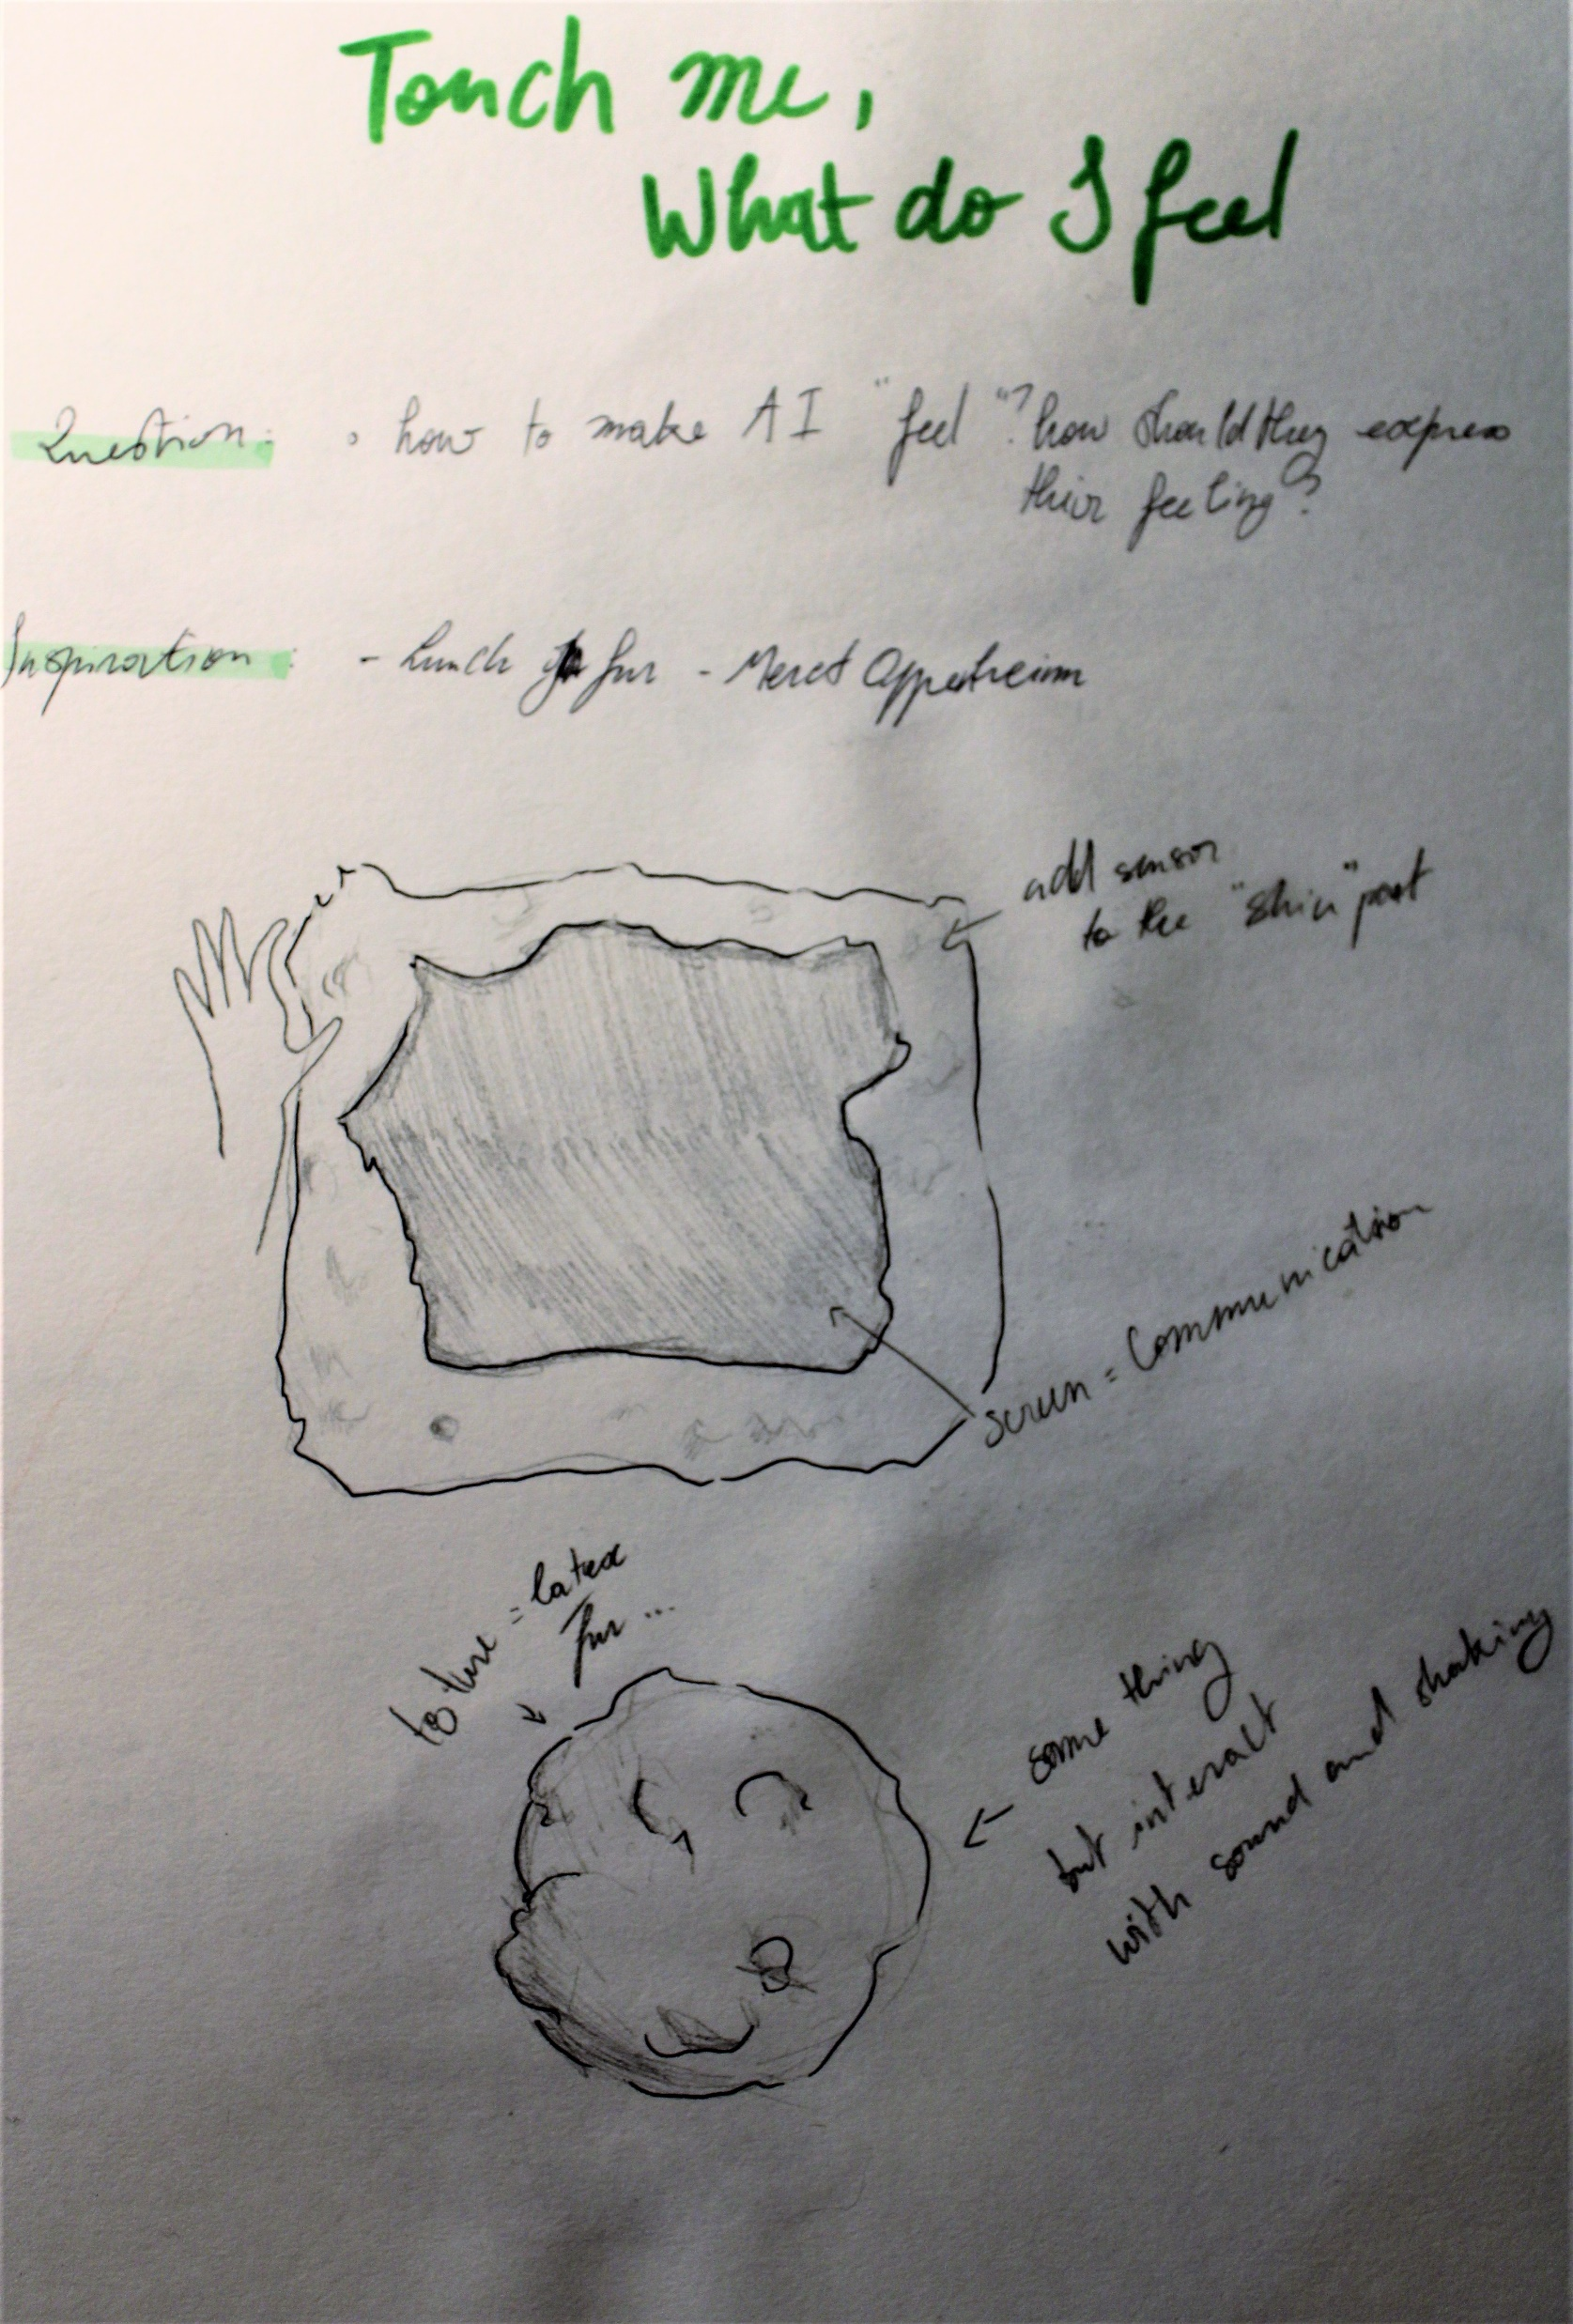 Touch me,
What do I feel
Question: • how to make AI "feel"? how should they express
their feeling?
Inspiration: - Lunch in fur - Meret Oppenheim
add sensor
to the "skin" part
screen = Communication
texture = latex
fur ...
some thing
but interact
with sound and shaking